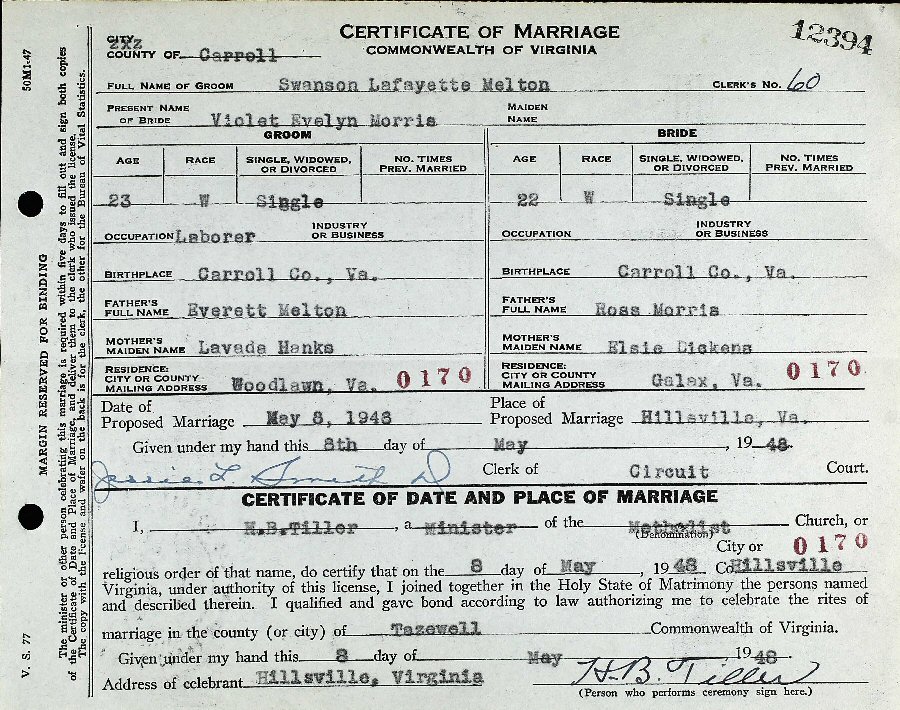 CERTIFICATE OF MARRIAGE
COMMONWEALTH OF VIRGINIA
12394
CITY
COUNTY OF Carroll
FULL NAME OF GROOM Swanson Lafayette Melton CLERK'S NO. 60
PRESENT NAME OF BRIDE Violet Evelyn Morris MAIDEN NAME
GROOM BRIDE
AGE RACE SINGLE, WIDOWED, OR DIVORCED NO. TIMES PREV. MARRIED AGE RACE SINGLE, WIDOWED, OR DIVORCED NO. TIMES PREV. MARRIED
23 W Single 22 W Single
OCCUPATION Laborer INDUSTRY OR BUSINESS OCCUPATION INDUSTRY OR BUSINESS
BIRTHPLACE Carroll Co., Va. BIRTHPLACE Carroll Co., Va.
FATHER'S FULL NAME Everett Melton FATHER'S FULL NAME Ross Morris
MOTHER'S MAIDEN NAME Lavada Hanks MOTHER'S MAIDEN NAME Elsie Dickens
RESIDENCE: CITY OR COUNTY MAILING ADDRESS Woodlawn, Va. 0170 RESIDENCE: CITY OR COUNTY MAILING ADDRESS Galax, Va. 0170
Date of Proposed Marriage May 8, 1948 Place of Proposed Marriage Hillsville, Va.
Given under my hand this 8th day of May, 1948.
Jessie L Smith D Clerk of Circuit Court.
CERTIFICATE OF DATE AND PLACE OF MARRIAGE
I, H.B.Tiller, a Minister of the Methodist Church, or
(Denomination) City or 0170
religious order of that name, do certify that on the 8 day of May, 1948 Co Hillsville
Virginia, under authority of this license, I joined together in the Holy State of Matrimony the persons named
and described therein. I qualified and gave bond according to law authorizing me to celebrate the rites of
marriage in the county (or city) of Tazewell Commonwealth of Virginia.
Given under my hand this 8 day of May, 1948.
Address of celebrant Hillsville, Virginia H.B. Tiller
(Person who performs ceremony sign here.)
50M1-47
MARGIN RESERVED FOR BINDING
V. S. 77
The minister or other person celebrating this marriage is required within five days to fill out and sign both copies
of the Certificate of Date and Place of Marriage, and deliver them to the clerk who issued the license.
The copy with the license and wafer on the back is for the clerk, the other for the Bureau of Vital Statistics.